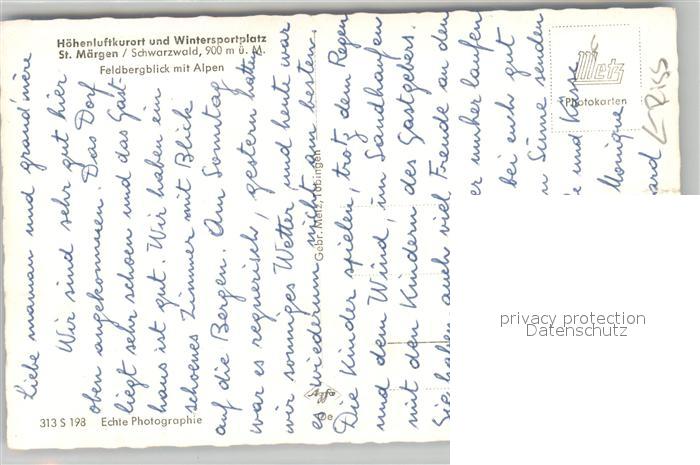 Höhenluftkurort und Wintersportplatz
St. Märgen / Schwarzwald, 900 m ü. M.
Feldbergblick mit Alpen
Liebe maman und grand'mère
Wir sind sehr gut hier
oben angekommen. Das Dorf
liegt sehr schoen und das Gast-
haus ist gut. Wir haben ein
schoenes Zimmer mit Blick
auf die Bergen. Am Sonntag
war es regnerisch, gestern hatten
wir sonniges Wetter und heute war
es wiederum nicht am besten.
Die Kinder spielen, trotz dem Regen
und dem Wind, im Sandhaufen
mit den Kindern des Gastgebers.
Sie haben auch viel Freude an den
umher laufen
bei euch gut
Sinne senden
und Küsse
Monique
Gebr. Metz, Tübingen
Metz
Photokarten
Agfa
313 S 198 Echte Photographie
privacy protection
Datenschutz